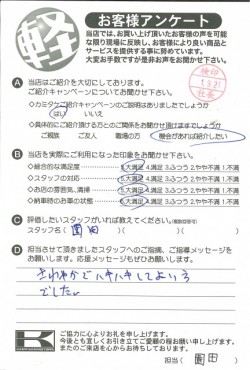 軽
お客様アンケート
当店では、お買い上げ頂いたお客様の声を可能
な限り現場に反映し、お客様により良い商品と
サービスを提供する事に努めています。
大変お手数ですが是非お声をお聞かせ下さい。
検印
社長
A 当店はご紹介を大切にしております。
ご紹介キャンペーンについてお聞かせ下さい。
◇カミタケご紹介キャンペーンのご説明はありましたでしょうか
はい いいえ
◇具体的にご紹介頂ける方とのご関係をお聞かせ頂けますでしょうか
ご親族 ご友人 職場の方 機会があれば紹介したい
B 当店を実際にご利用になった印象をお聞かせ下さい。
◇総合的な満足度 5.大満足 4.満足 3.ふつう 2.やや不満 1.不満
◇スタッフの対応 5.大満足 4.満足 3.ふつう 2.やや不満 1.不満
◇お店の雰囲気、清掃 5.大満足 4.満足 3.ふつう 2.やや不満 1.不満
◇納車時のお車の状態 5.大満足 4.満足 3.ふつう 2.やや不満 1.不満
C 評価したいスタッフがいれば教えてください。
スタッフ名( 園田 )
D 担当させて頂きましたスタッフへのご指摘、ご指導メッセージを
お願いします。応援メッセージもぜひお願いします。
さわやかでハキハキしてよいう
でした。
K
ご協力に心よりお礼を申し上げます。
今後とも宜しくお引き立てご愛顧の程お願い申し上げます。
またのご来店を心からお待ちしております。
担当( 園田 )